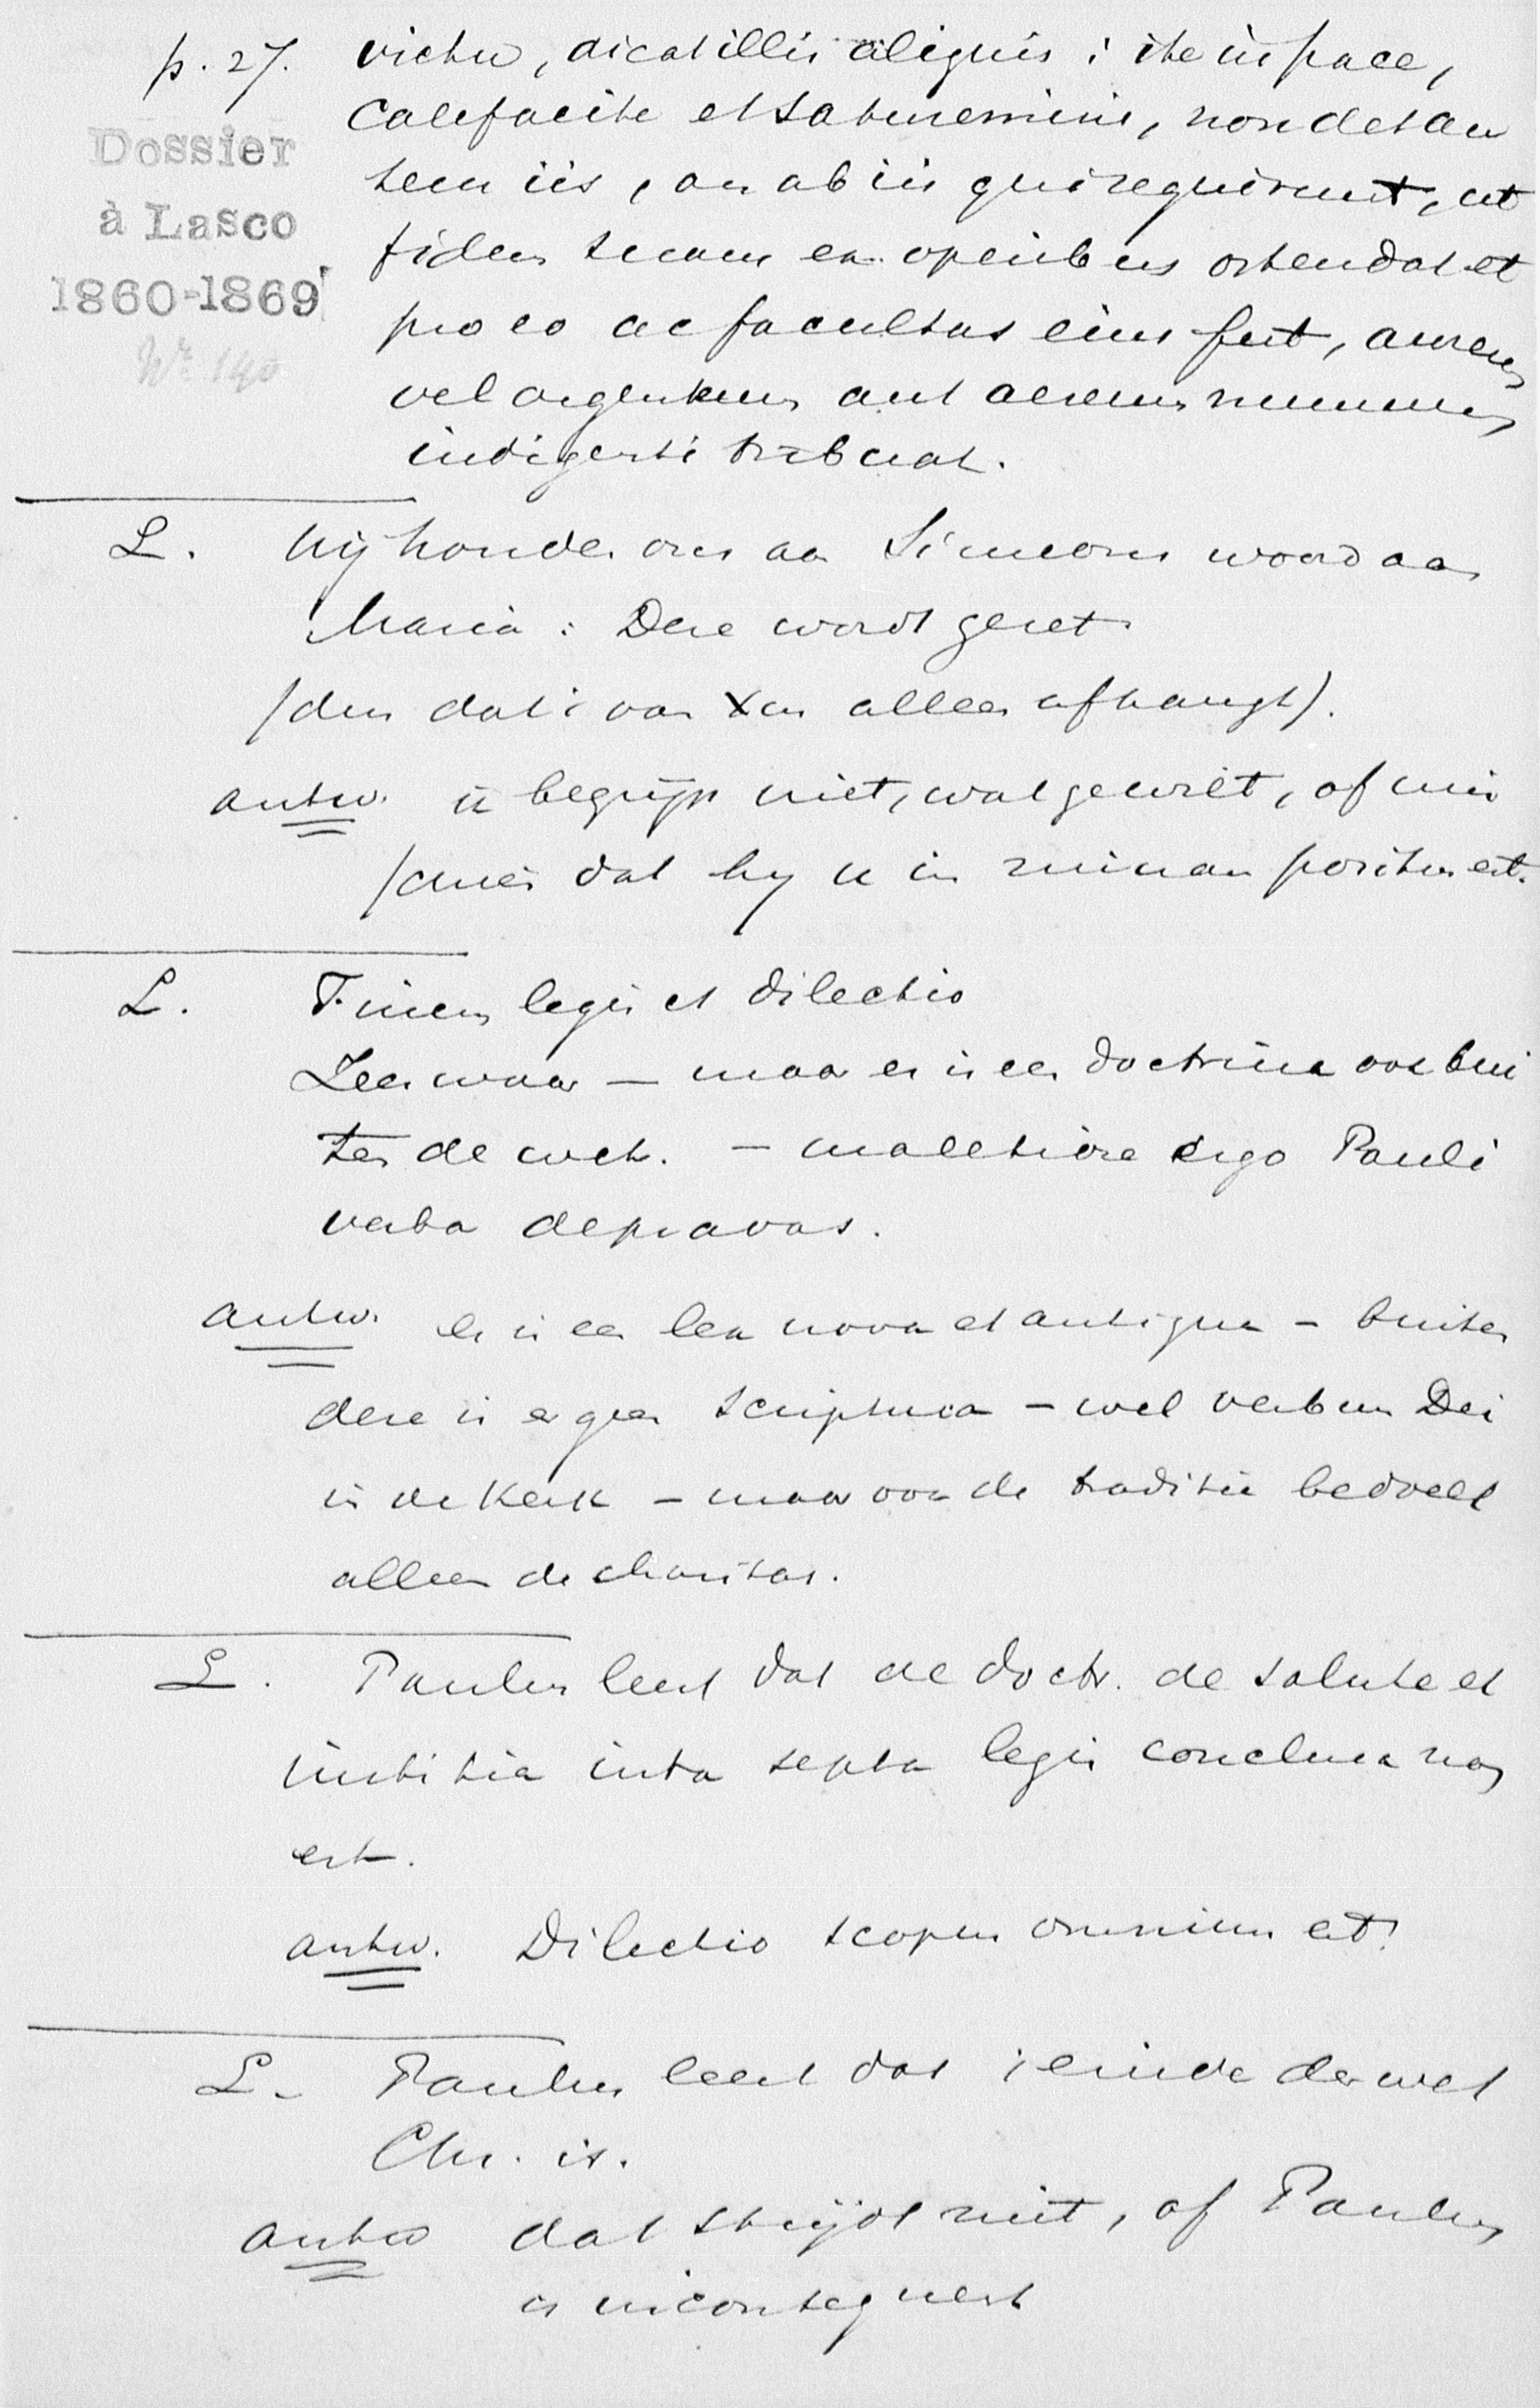 p. 27. victu, dicat illis aliquis: ite in pace,
Dossier
à Lasco
1860-1869
No 140
calefacite et saturemini, non det au
tem iis, an ab iis qui requirunt, ut
fidem suam ex operibus ostendat et
pro eo ac facultas eius fert, aureum
vel argenteum aut aereum nummum
indigenti tribuat.
L. Wij houden ons aan Simeons woord aan
Maria: Deze wordt gezet
(dus dat 't van Xus alleen afhangt).
antw. ik begrijp niet, wat ge wilt, of
dat hy u in ruinam positus est.
L. Finem legis et dilectio
Zeer waar — maar er is een doctrina ook bui
ten de wet. — ergo Pauli
verba depravas.
antw. er is een lex nova et antiqua – buiten
deze is er geen scriptura – wel verbum Dei
in de Kerk – maar van de traditie bedoelt
alleen de charitas.
L. Paulus leert dat de doctr. de salute et
iustitia intra septa legis conclusa non
est.
antw. Dilectio scopus omnium est!
L. Paulus leert dat 't einde der wet
Chr. is.
antw dat strijdt niet, of Paulus
is inconsequent